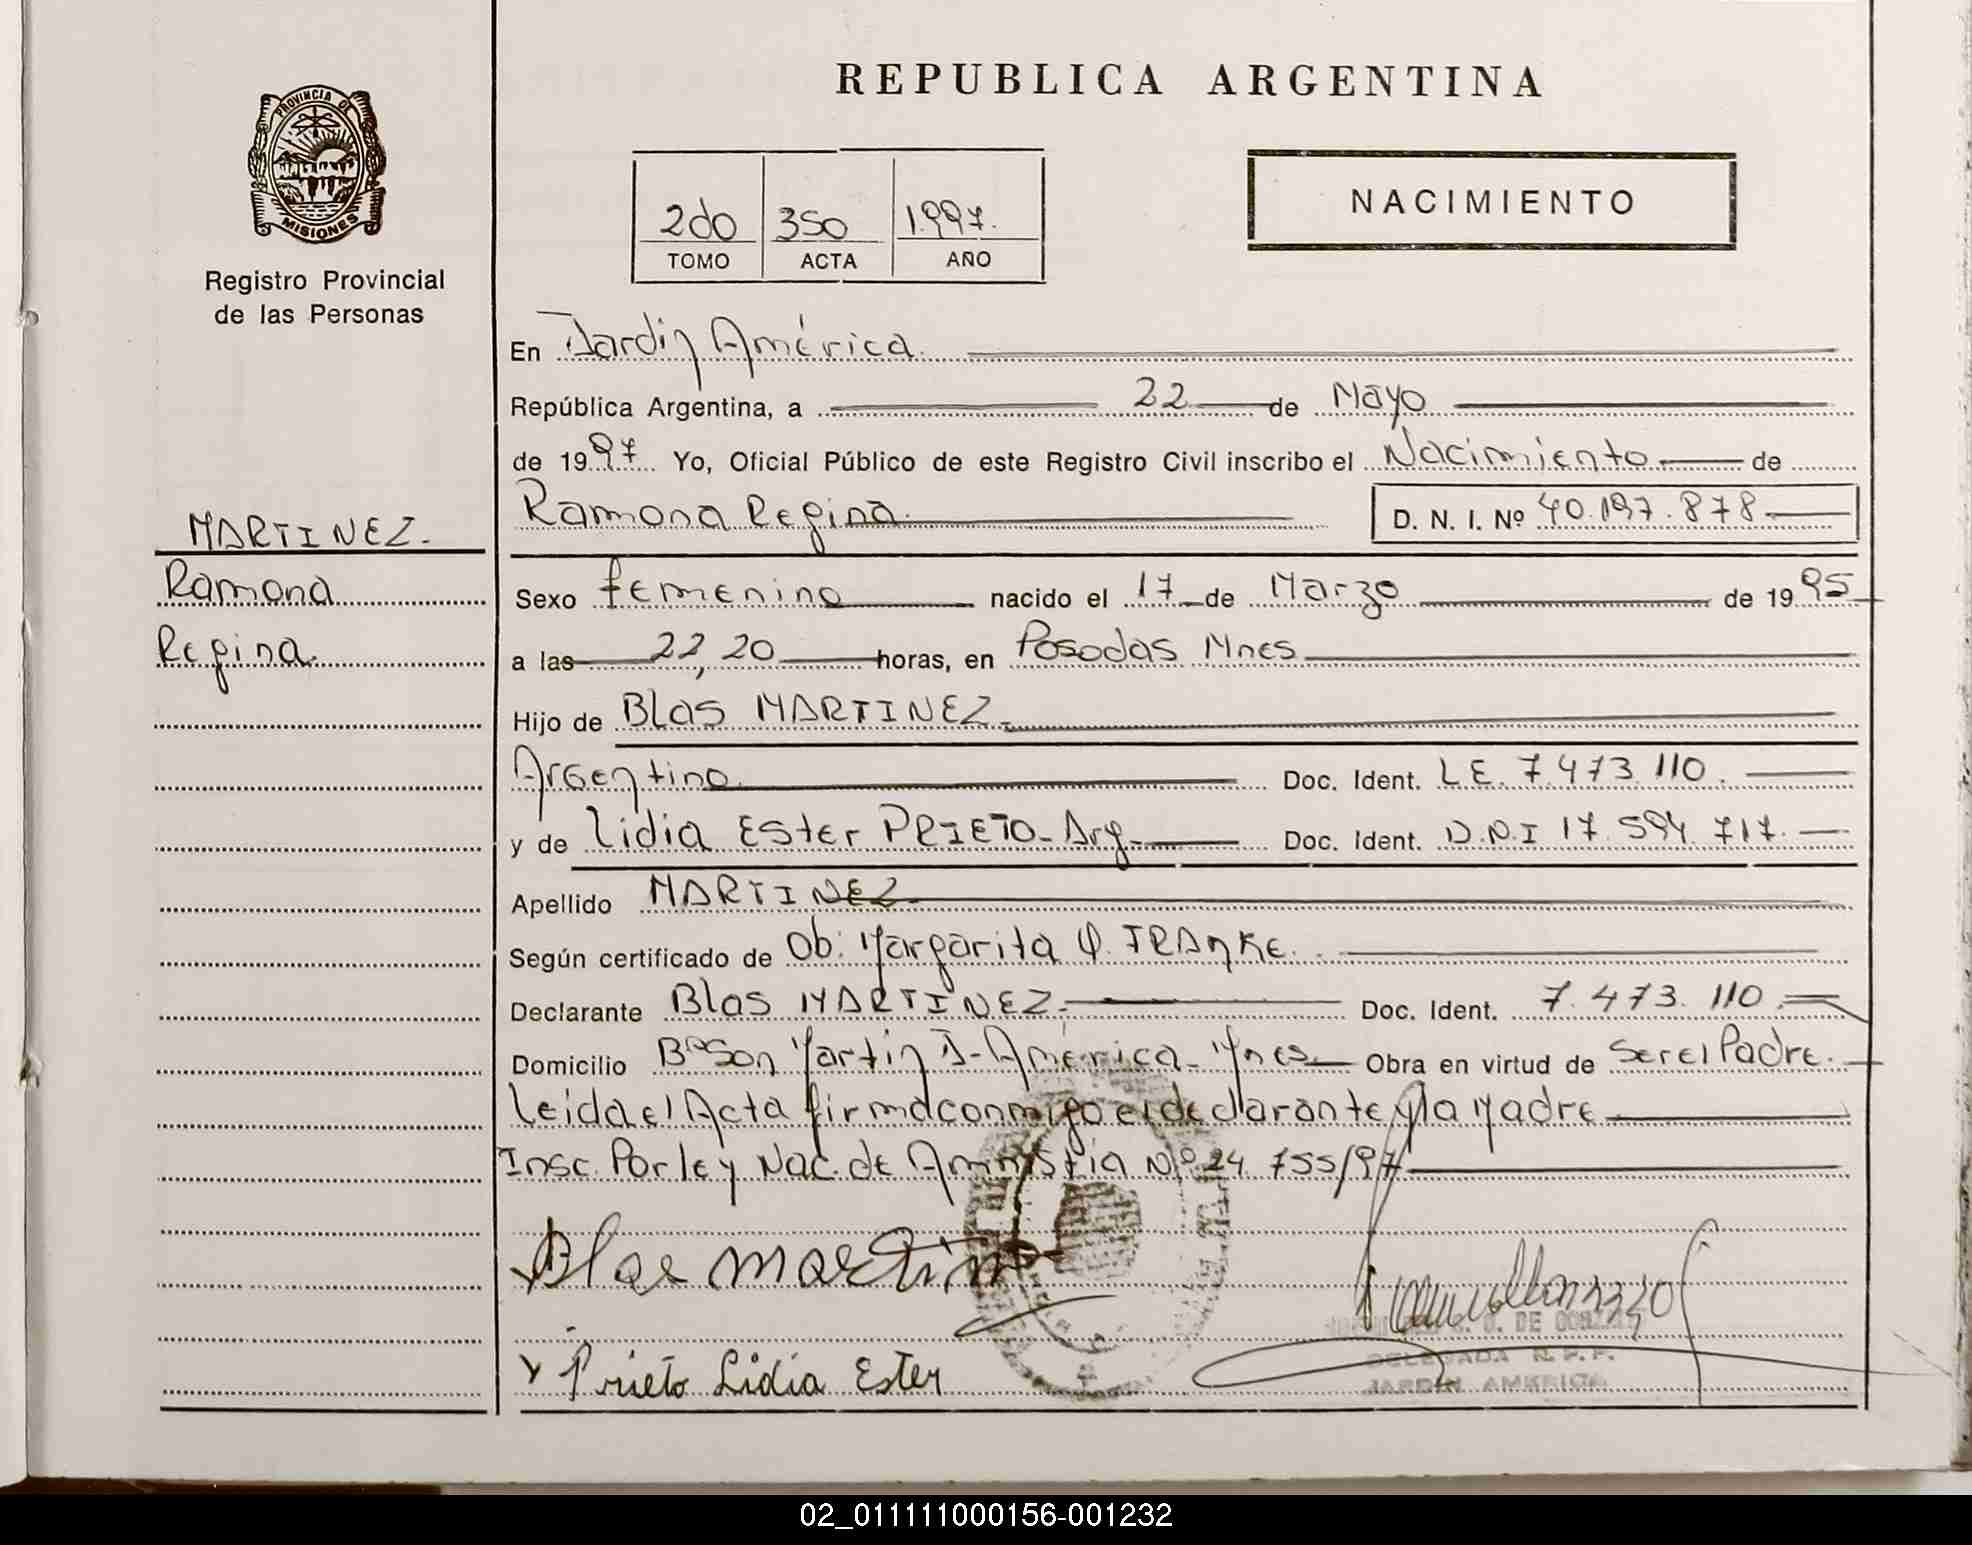 REPUBLICA ARGENTINA
PROVINCIA DE
MISIONES
Registro Provincial
de las Personas
2do 350 1.997.
TOMO ACTA AÑO
NACIMIENTO
En Jardin América
República Argentina, a 22 de Mayo
de 1997. Yo, Oficial Público de este Registro Civil inscribo el Nacimiento de
Ramona Regina. D. N. I. Nº 40.197.878
MARTINEZ.
Ramona
Regina.
Sexo femenino nacido el 17 de Marzo de 1995
a las 22,20 horas, en Posadas Mnes
Hijo de Blas MARTINEZ
Argentino. Doc. Ident. L.E. 7.473.110.
y de Lidia Ester PRIETO- Arg. Doc. Ident. D.N.I 17.594.717.
Apellido MARTINEZ
Según certificado de Ob: Margarita Q. FRANKE.
Declarante Blas MARTINEZ.- Doc. Ident. 7.473.110.
Domicilio Bº San Martin J- América- Mnes Obra en virtud de Ser el Padre.
leida el Acta firma conmigo el declarante y la Madre
Insc. Por ley Nac. de Amnistia Nº 24.755/97
Blas martin
Prieto Lidia Ester
DE
DELEGADA R. P. P.
JARDIN AMERICA
02_011111000156-001232